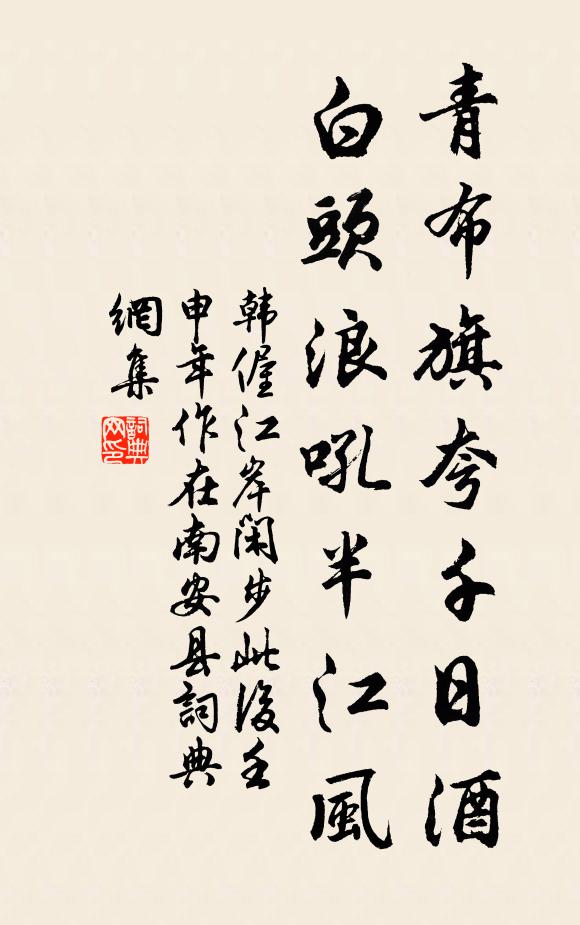 青布旗夸千日酒
白頭浪吼半江風
韩偓江岸閑步此後壬
申年作在南安县詞典
網集
詞典
网印